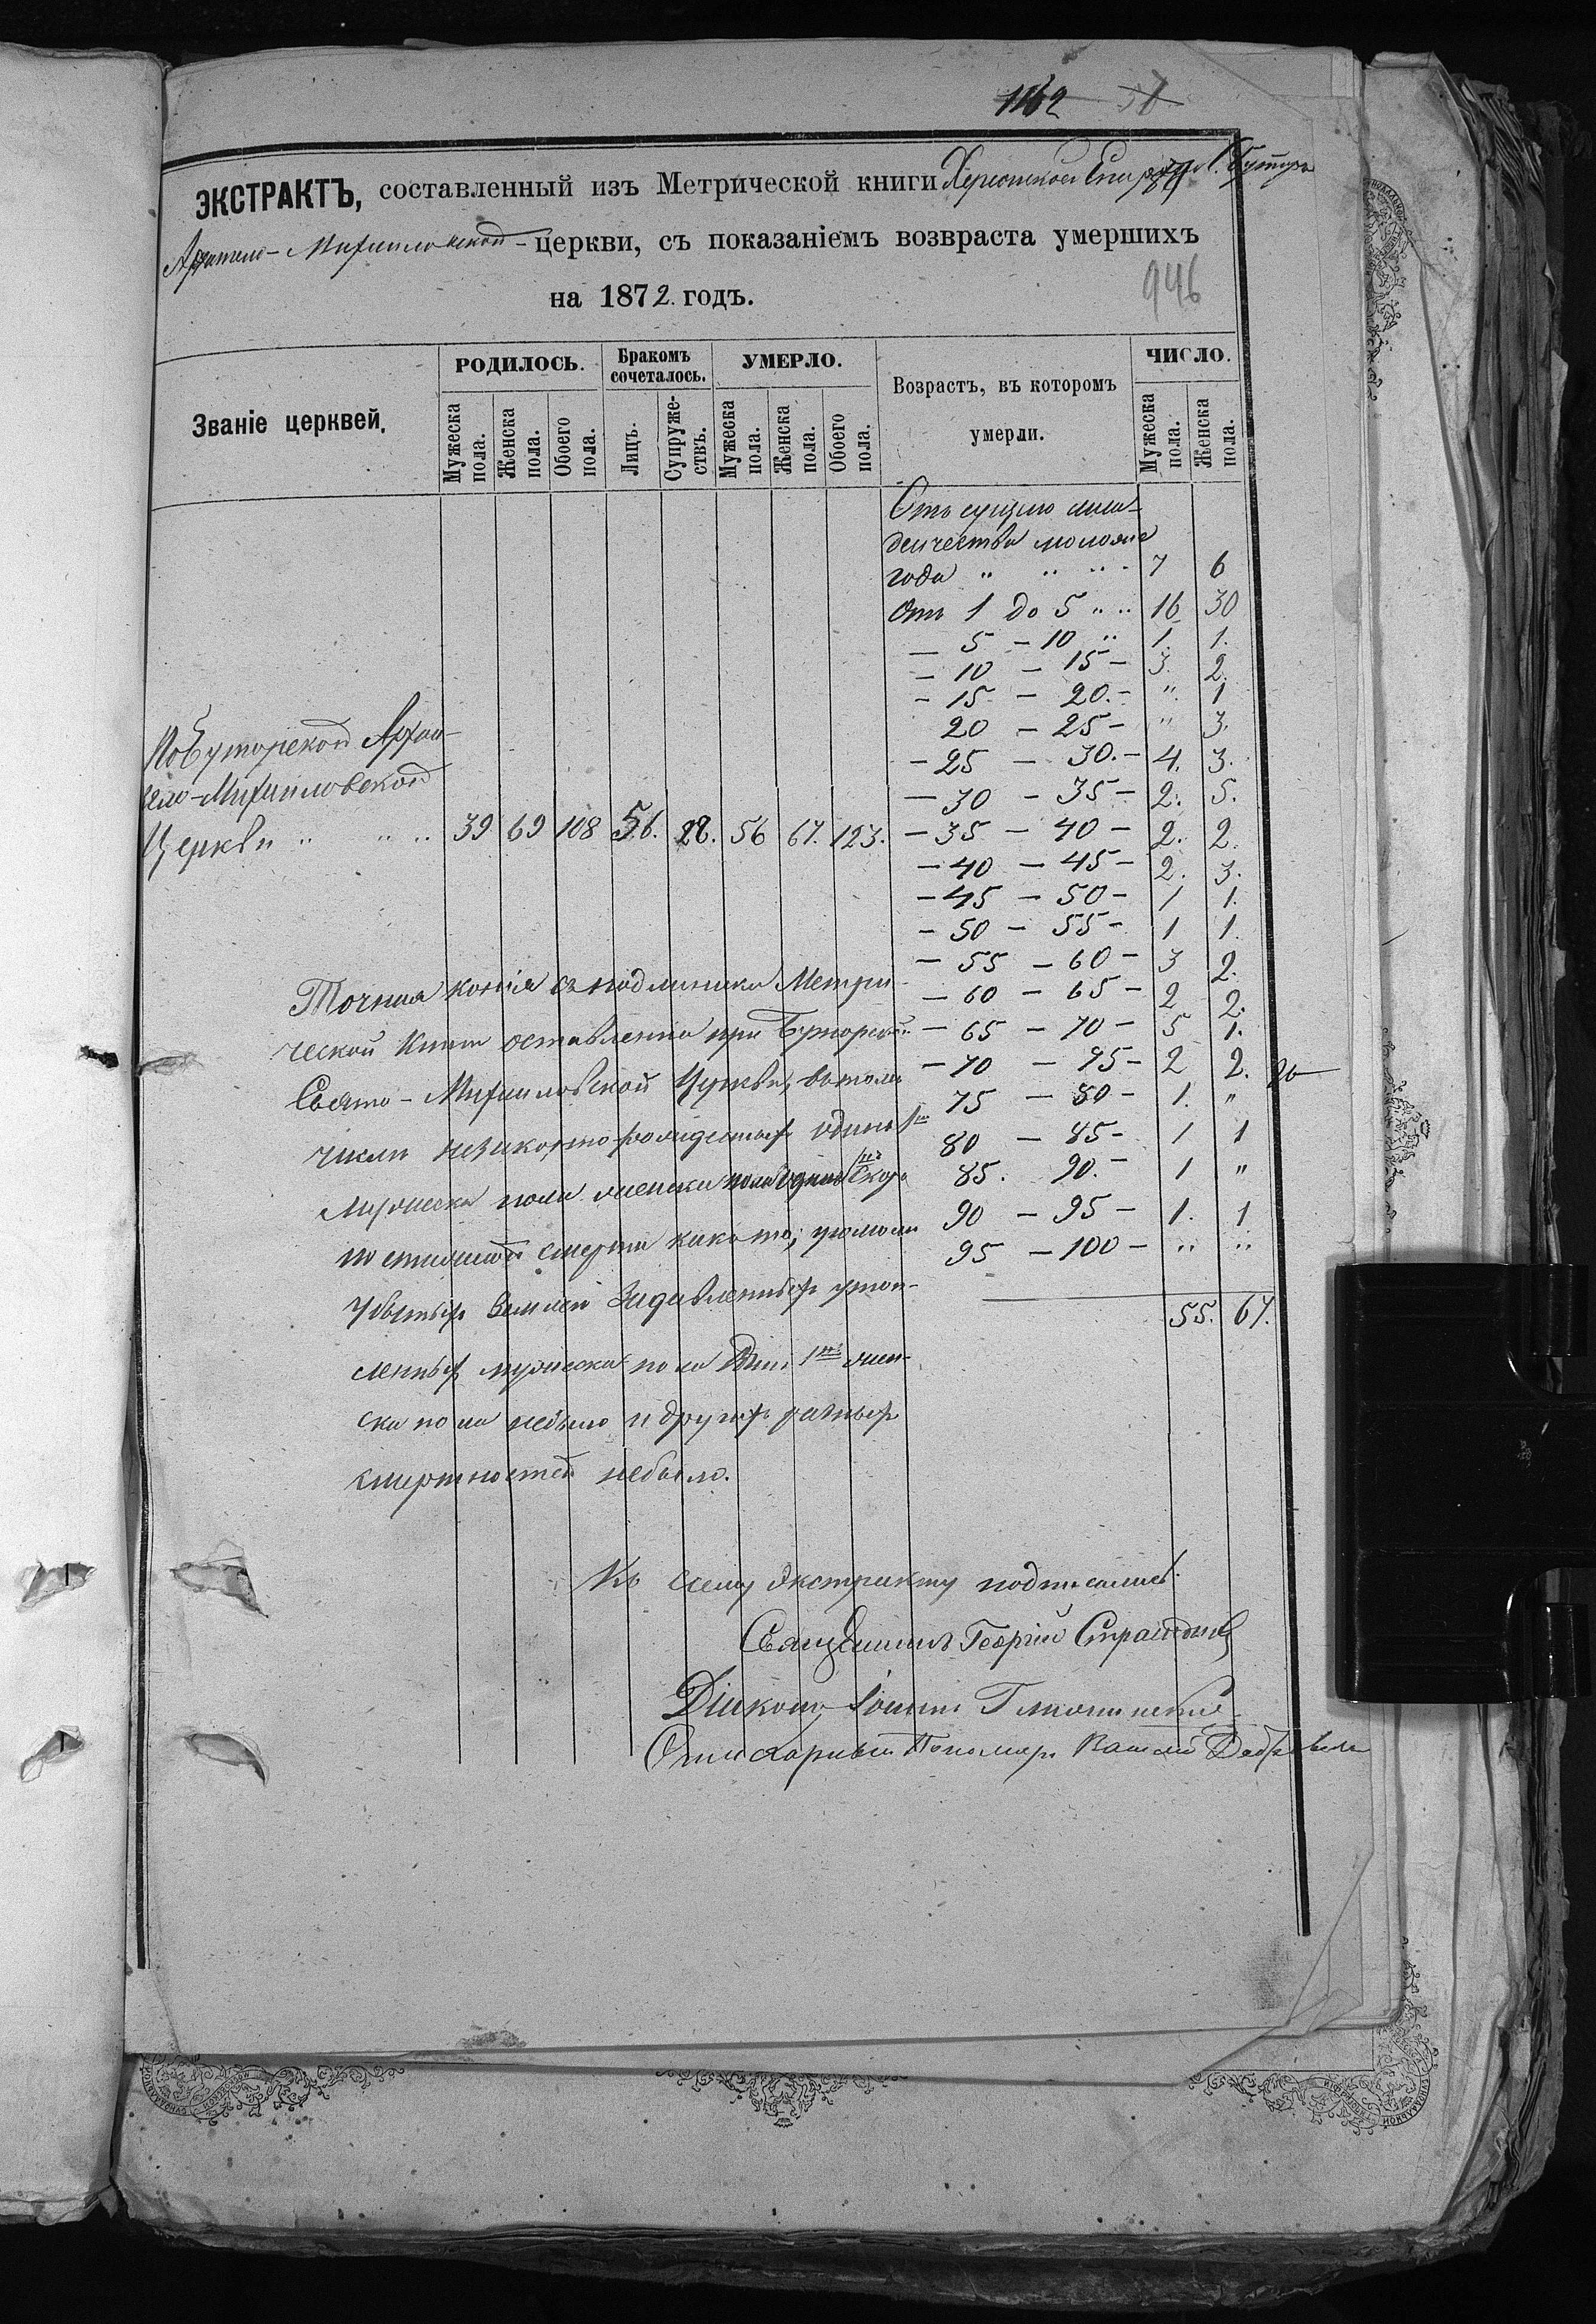 1162 37
ЭКСТРАКТЪ, составленный изъ Метрической книги Херсонской Епархіи С. Бутора
Архангело-Михайловской церкви, съ показаніемъ возвраста умершихъ
на 1872. годъ.
946
Званіе церквей. РОДИЛОСЬ. Бракомъ сочеталось. УМЕРЛО. Возрастъ, въ которомъ умерли. ЧИСЛО.
Мужеска пола. Женска пола. Обоего пола. Лицъ. Супружествъ. Мужеска пола. Женска пола. Обоего пола. Мужеска пола. Женска пола.
Отъ сущаго мла-
денчества моложе
года " " " - 7 6
Отъ 1 до 5 " " 16 30
— 5 — 10 " 1. 1.
— 10 — 15 — 3. 2.
— 15 — 20. — " 1
20 — 25 — " 3.
— 25 — 30. — 4. 3.
— 30 — 35 — 2. 5.
— 35 — 40 — 2. 2.
— 40 — 45 — 2. 3.
— 45 — 50 — 1 1.
— 50 — 55 — 1 1.
— 55 — 60 — 3 2.
— 60 — 65 — 2 2.
— 65 — 70 — 5 1.
— 70 — 75 — 2 2.
75 — 80 — 1. "
80 — 85 — 1 1
85. 90. — 1 "
90 — 95 — 1. 1
95 — 100 — " "
55. 67.
По Буторской Архан-
гело-Михайловской
Церкви " " " 39 69 108 56. 28. 56 67. 123.
Точная копія съ подлинника Метри-
ческой Книги оставленна при Буторской
Свято-Михайловской Церкви, въ томъ
числи незаконно рожденныхъ одинъ
мужеска пола женска пола одинъ Скоро
постижной смерти какъ то;
Убитыхъ Землею Задавленныхъ утоп-
ленныхъ мужеска пола женс-
ска пола небыло и другихъ разныхъ
смертностей небыло.
Къ сему Экстракту подписались:
Священникъ Георгій
Діаконъ Іоаннъ
Пономарь